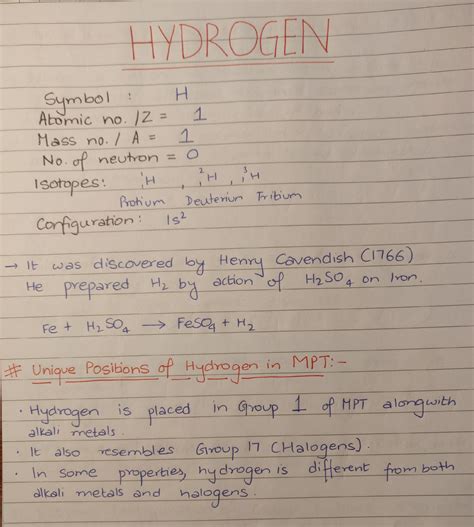 HYDROGEN
Symbol : H
Atomic no. /Z = 1
Mass no. / A = 1
No. of neutron = 0
Isotopes: ¹H , ²H , ³H
Protium Deuterium Tribium
Configuration: 1s²
→ It was discovered by Henry Cavendish (1766)
He prepared H₂ by action of H₂SO₄ on Iron.
Fe + H₂SO₄ → FeSO₄ + H₂
# Unique Positions of Hydrogen in MPT:-
· Hydrogen is placed in Group 1 of MPT alongwith
alkali metals.
· It also resembles Group 17 (Halogens).
· In some properties, hydrogen is different from both
alkali metals and halogens.